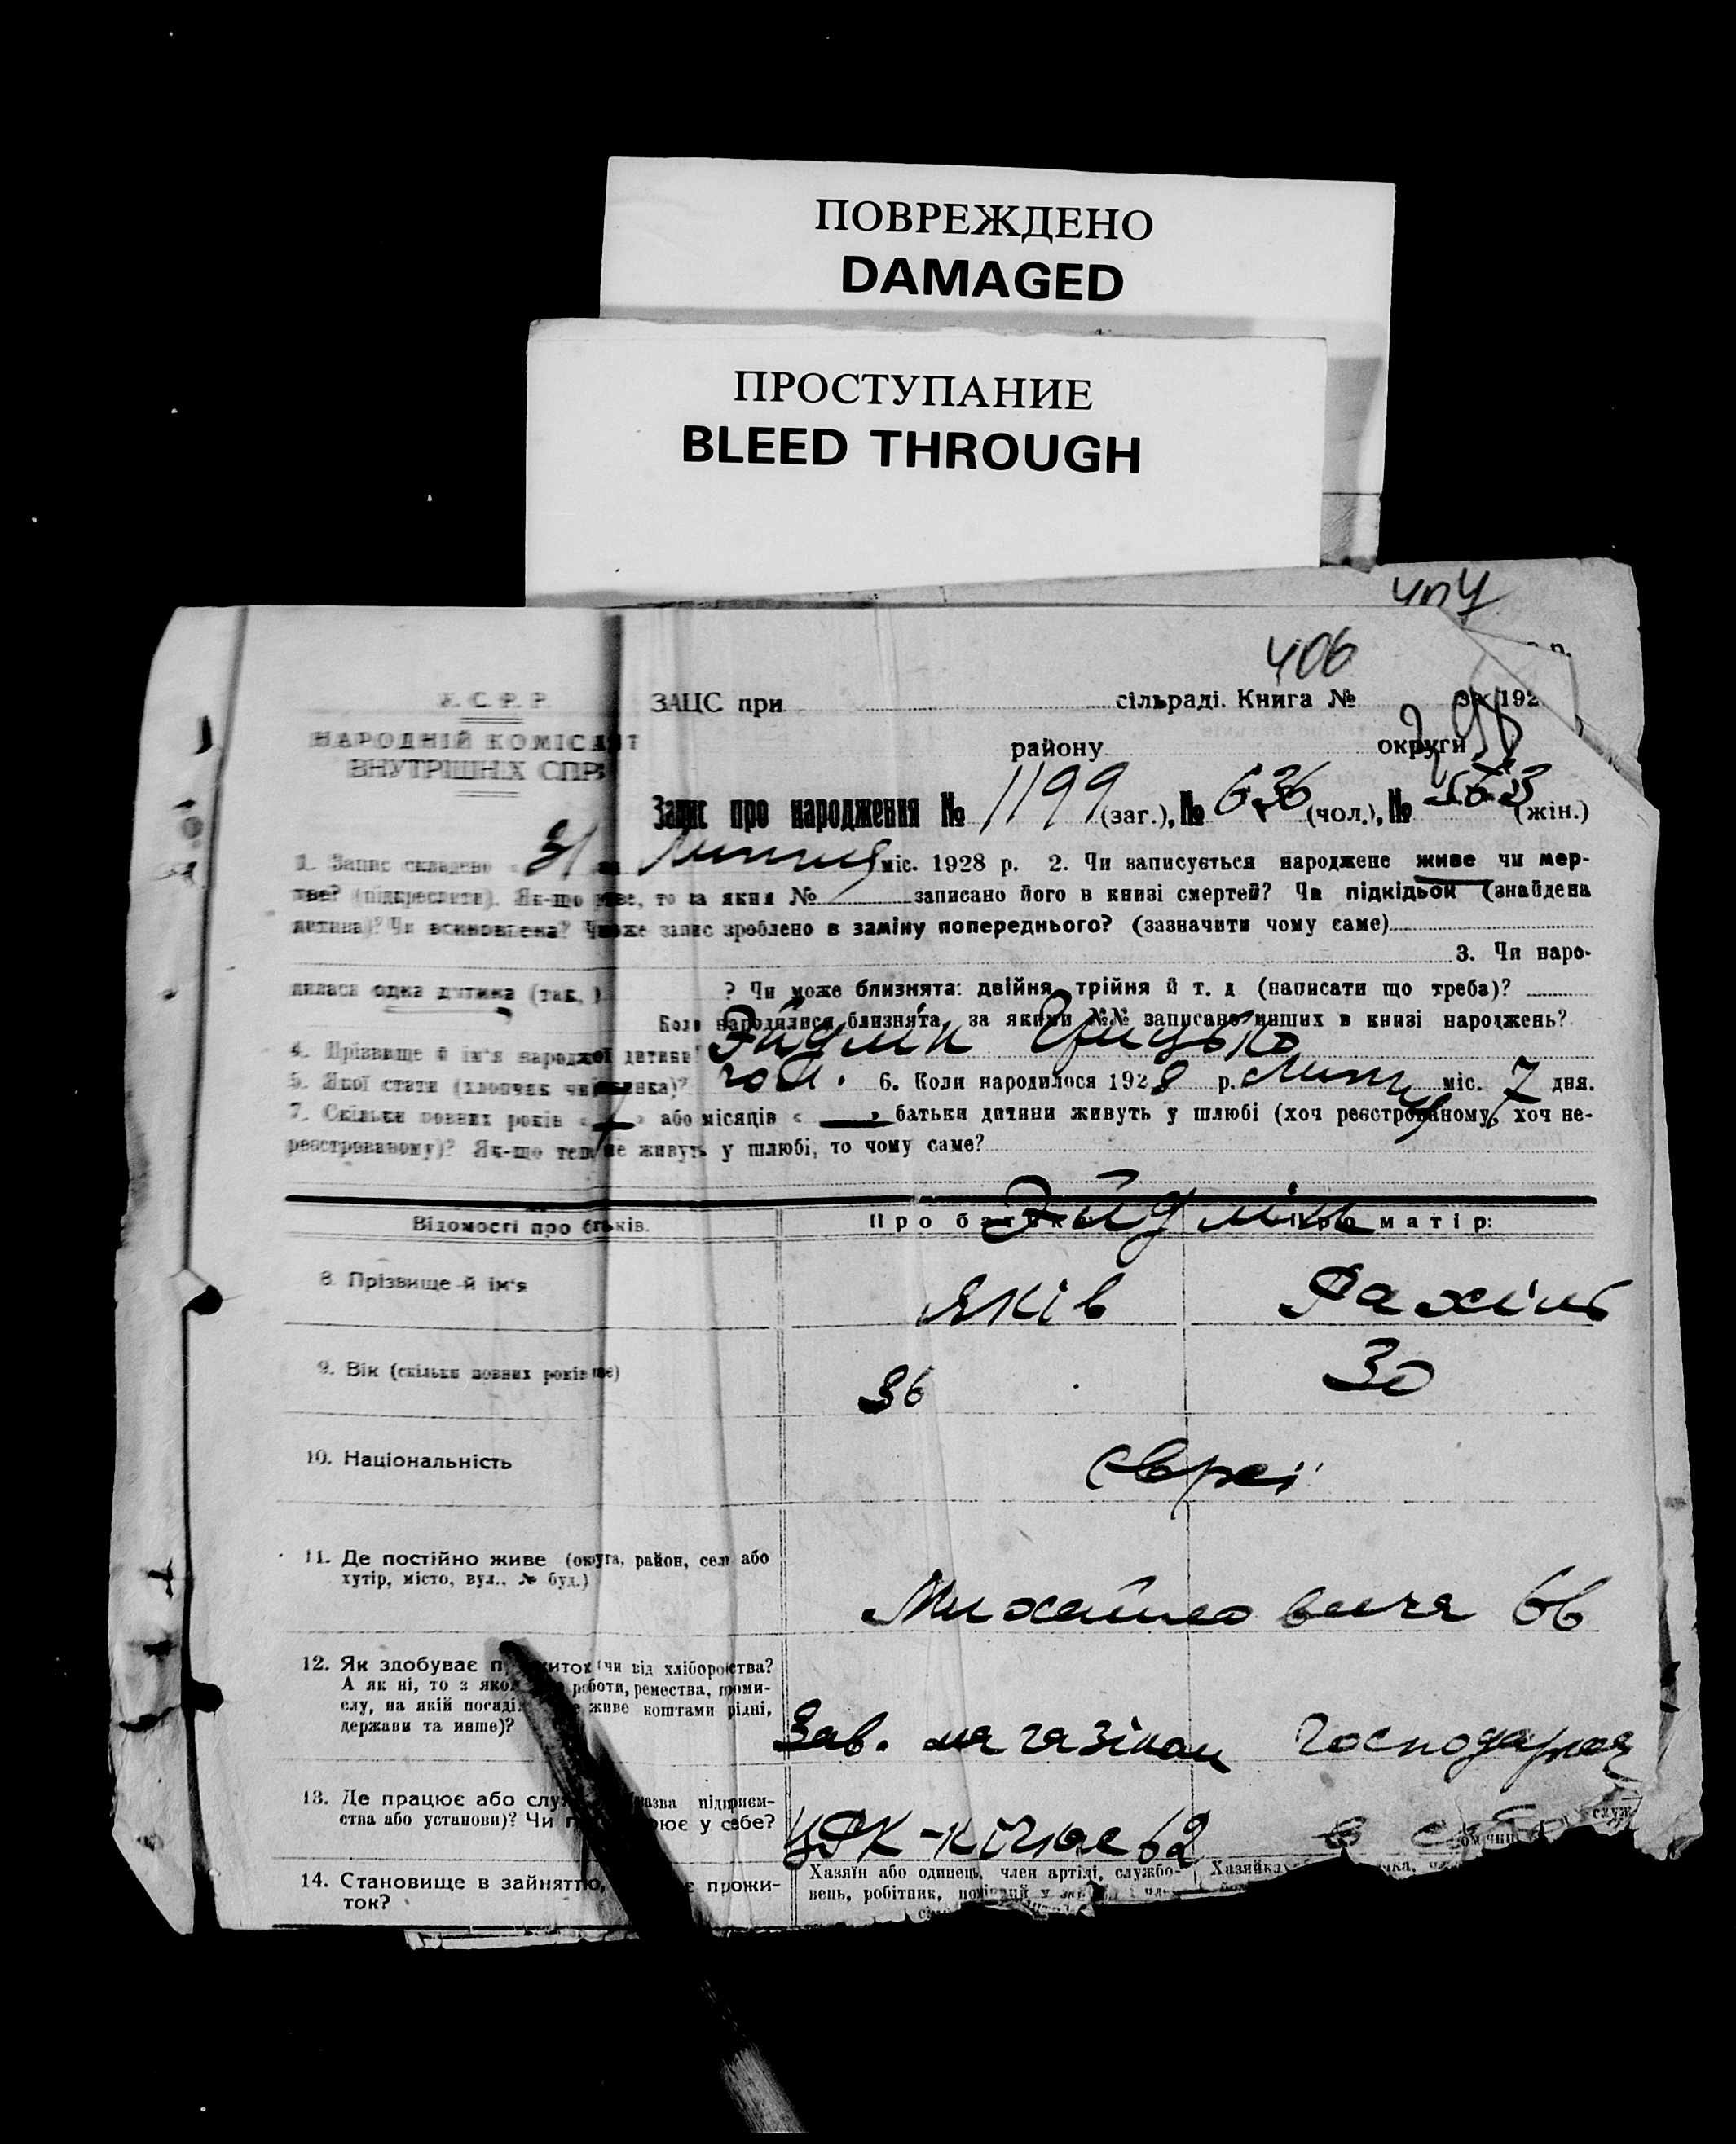 ПОВРЕЖДЕНО
DAMAGED
ПРОСТУПАНИЕ
BLEED THROUGH
406
У. С. Р. Р.
ЗАЦС при сільраді. Книга № за 192
НАРОДНІЙ КОМІСАРІЯТ
району округи
ВНУТРІШНІХ СПРАВ
Запис про народження № 1199 (заг.), № 636 (чол.), № 563 (жін.)
1. Запис складено « 31 » Липня міс. 1928 р. 2. Чи записується народжене живе чи мер-
тве? (підкреслити). Як-що живе, то за яким № записано його в книзі смертей? Чи підкідьок (знайдена
дитина)? Чи всиновлена? Чи може запис зроблено в заміну попереднього? (зазначити чому саме)
3. Чи наро-
дилася одна дитина (так, ) ? Чи може близнята: двійня, трійня й т. д (написати що треба)?
Коли народилися близнята, за якими №№ записано инших в книзі народжень?
4. Прізвище й ім'я народженої дитини? Эйдлін Грицько
5. Якої статі (хлопчик чи дівка)? чол. 6. Коли народилося 1928 р. Липня міс. 7 дня.
7. Скільки повних років « » або місяців « — » батьки дитини живуть у шлюбі (хоч реєстрованому, хоч не-
реєстрованому)? Як-що теп не живуть у шлюбі, то чому саме?
Відомості про батьків. Про батька: Про матір:
Эйдлін
8. Прізвище й ім'я Яків Рахіль
9. Вік (скільки повних років має) 36 30
10. Національність євреї
11. Де постійно живе (округа, район, село або
хутір, місто, вул., № буд.)
Михайловича 66
12. Як здобуває прожиток (чи від хліборобства?
А як ні, то з якої роботи, ремества, проми-
слу, на якій посаді. живе коштами рідні,
держави та инше)?
Зав. магазіном Господарка
13. Де працює або служить назва підприєм-
ства або установи)? Чи працює у себе?
ЦРК 62 в себе
14. Становище в зайняттю, прожи-
ток?
Хазяїн або одинець, член артілі, службо-
вець, робітник,
Хазяйка